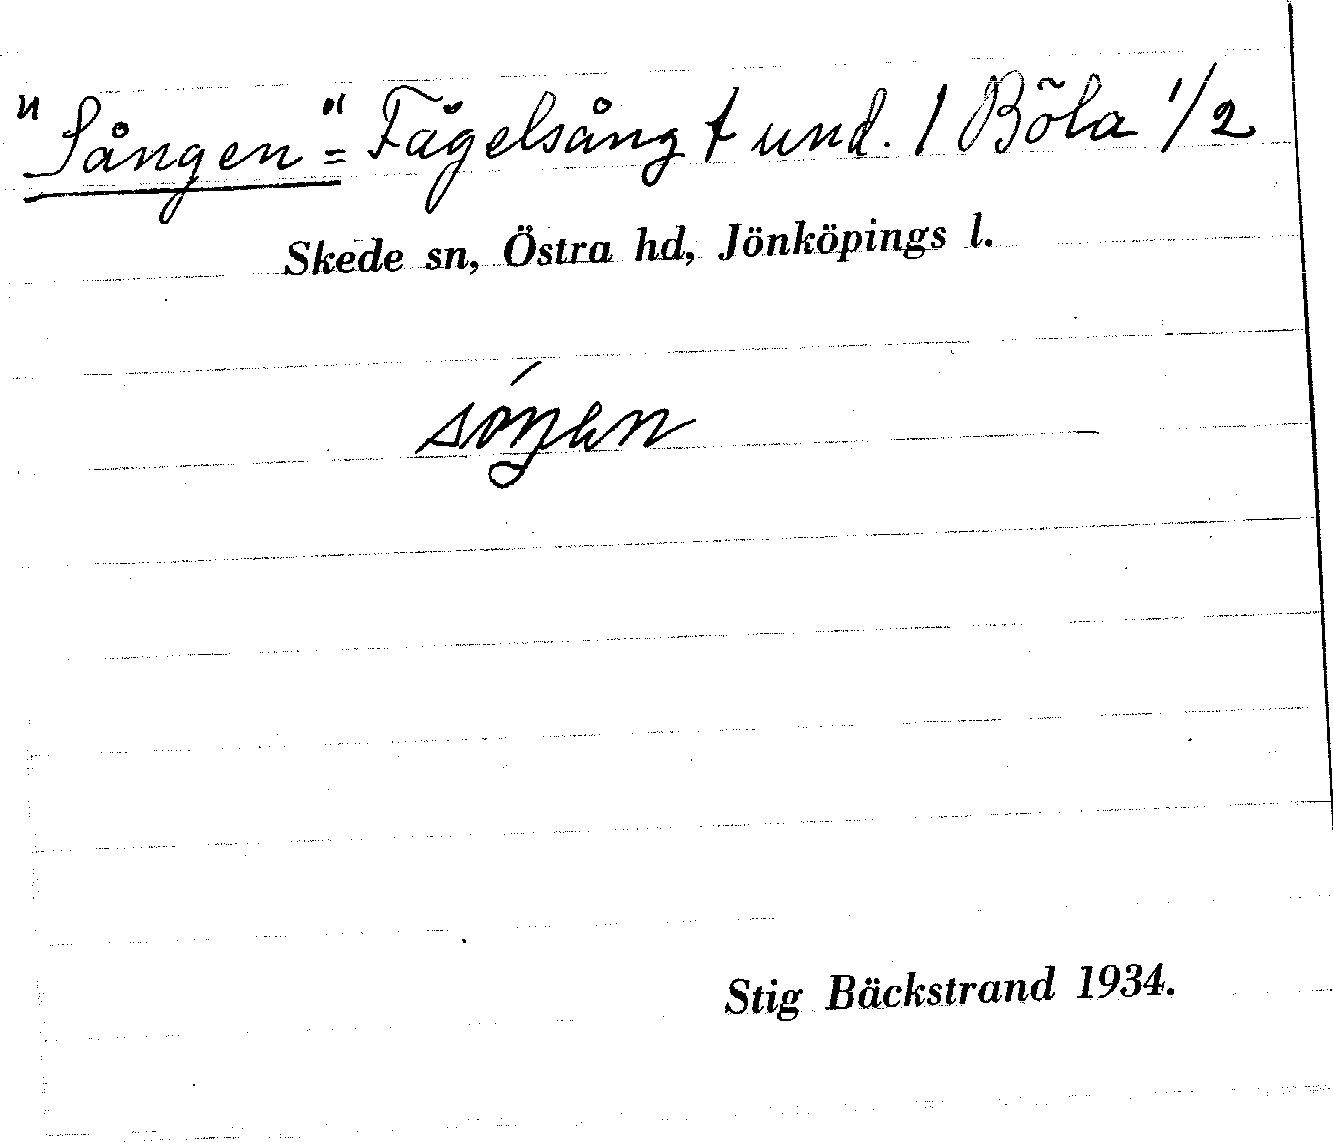 "Sången" = Fågelsång t und. 1 Böla 1/2
Skede sn, Östra hd, Jönköpings l.
Stig Bäckstrand 1934.